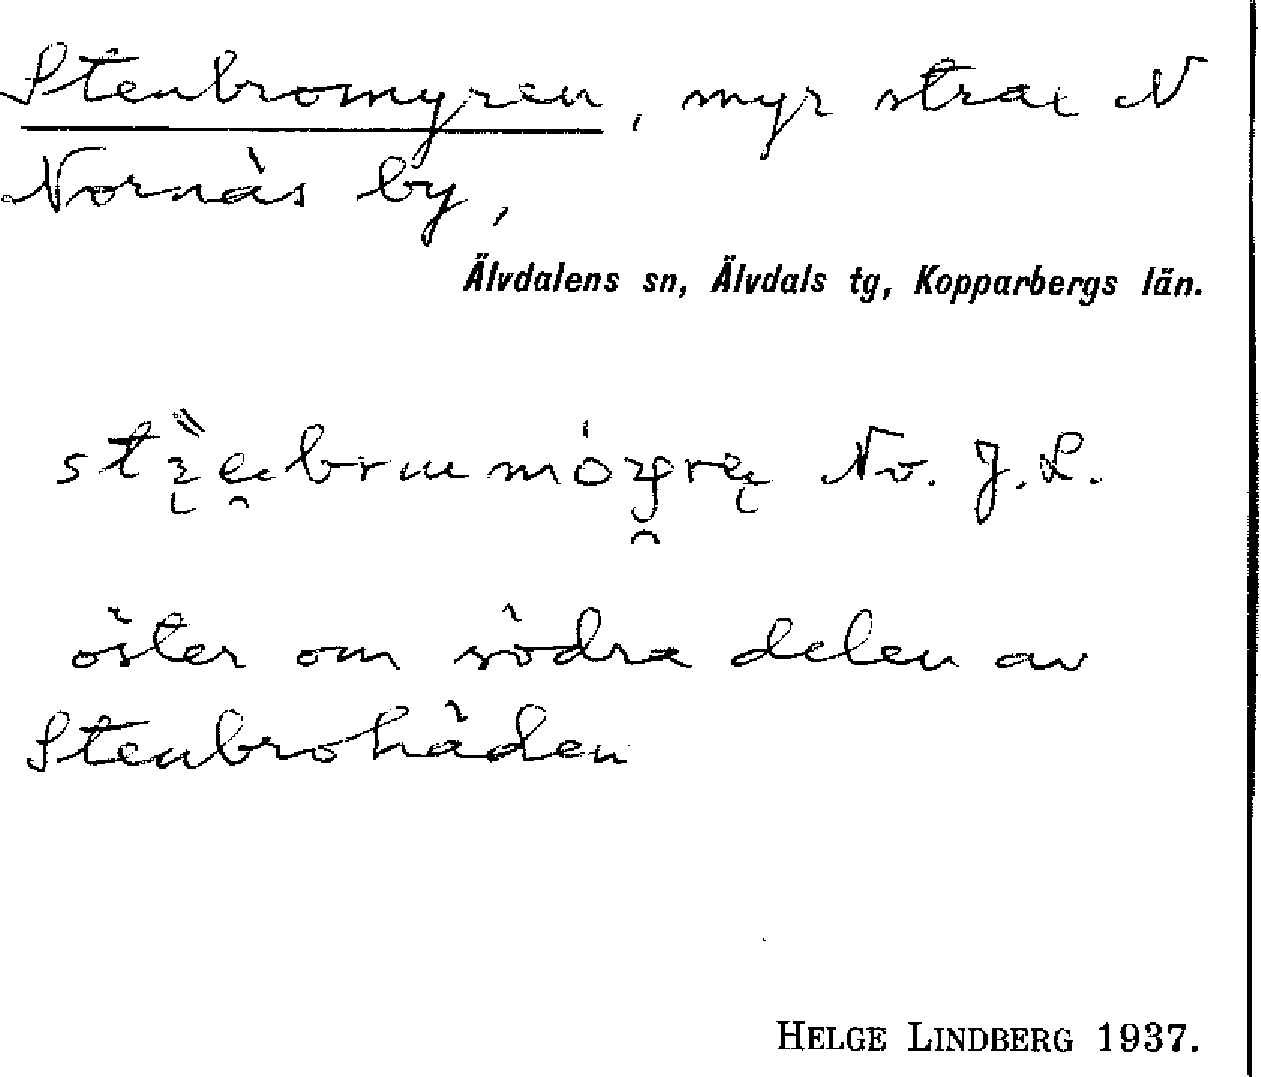 Stenbromyren, myr strax N
Nornäs by,
Älvdalens sn, Älvdals tg, Kopparbergs län.
No. J. L.
öster om södra delen av
Stenbrohäden
HELGE LINDBERG 1937.